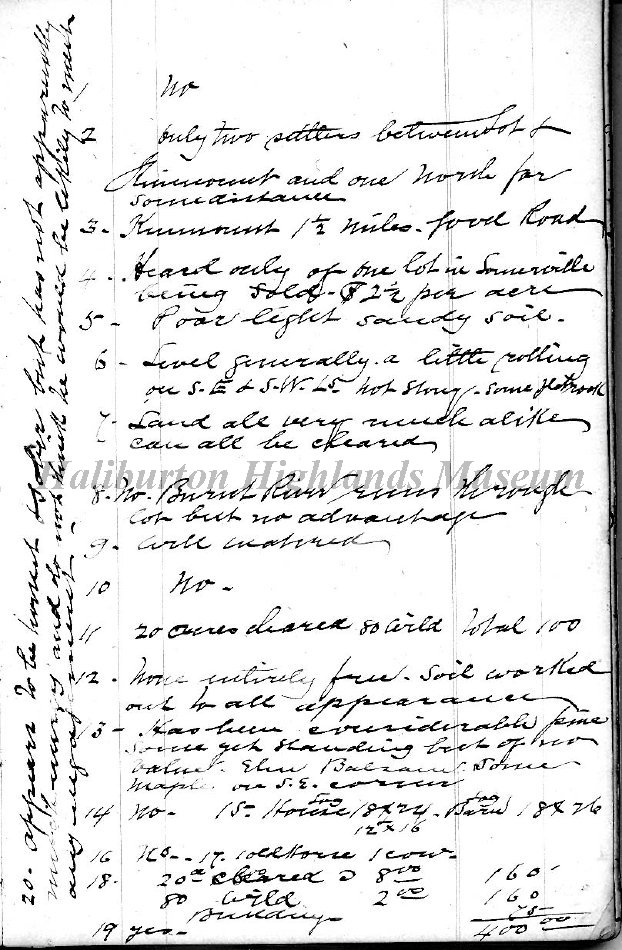 1 No
2 Only two settlers between Lot &
Kinmount and one North for
some distance
3 - Kinmount 1½ Miles - good Road
4 - Heard only of one lot in Somerville
being sold - $2½ per acre
5 - Poor light sandy soil -
6 - Level generally - a little rolling
on S.E & S.W. not stony - some flat rock
7 - Land all very much alike
can all be cleared
Haliburton Highlands Museum
8 - No. Burnt River runs through
lot but no advantage
9 - Well watered
10 No -
11 20 acres cleared 80 Wild Total 100
12 - None entirely free - Soil worked
out to all appearance
13 - Has been considerable pine
some yet standing but of no
value - Elm Balsam some
Maple on S.E. corner
14 No - 15 - House log 18x24 - Barn log 18x26
12x16
16 No - 17. 1 old horse 1 cow -
18 - 20a cleared @ 8.00 160
80 wild 2.00 160
Buildings 75
400.00
19 yes -
20 - appears to be honest & sober but has not apparently
much energy and do not think he would be likely to meet
any engagement -